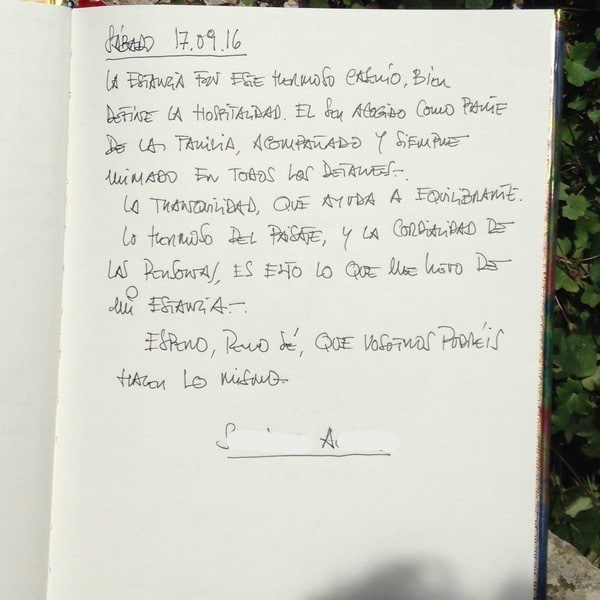 SÁBADO 17.09.16
LA ESTANCIA EN ESTE HERMOSO CASERÍO, BIEN
DEFINE LA HOSPITALIDAD. EL SER ACOGIDO COMO PARTE
DE LA FAMILIA, ACOMPAÑADO Y SIEMPRE
MIMADO EN TODOS LOS DETALLES.-
LA TRANQUILIDAD, QUE AYUDA A EQUILIBRARTE.
LO HERMOSO DEL PAISAJE, Y LA CORDIALIDAD DE
LAS PERSONAS, ES ESTO LO QUE ME LLEVO DE
MI ESTANCIA.-
ESPERO, PERO SÉ, QUE VOSOTROS PODRÉIS
HACER LO MISMO-
S A.